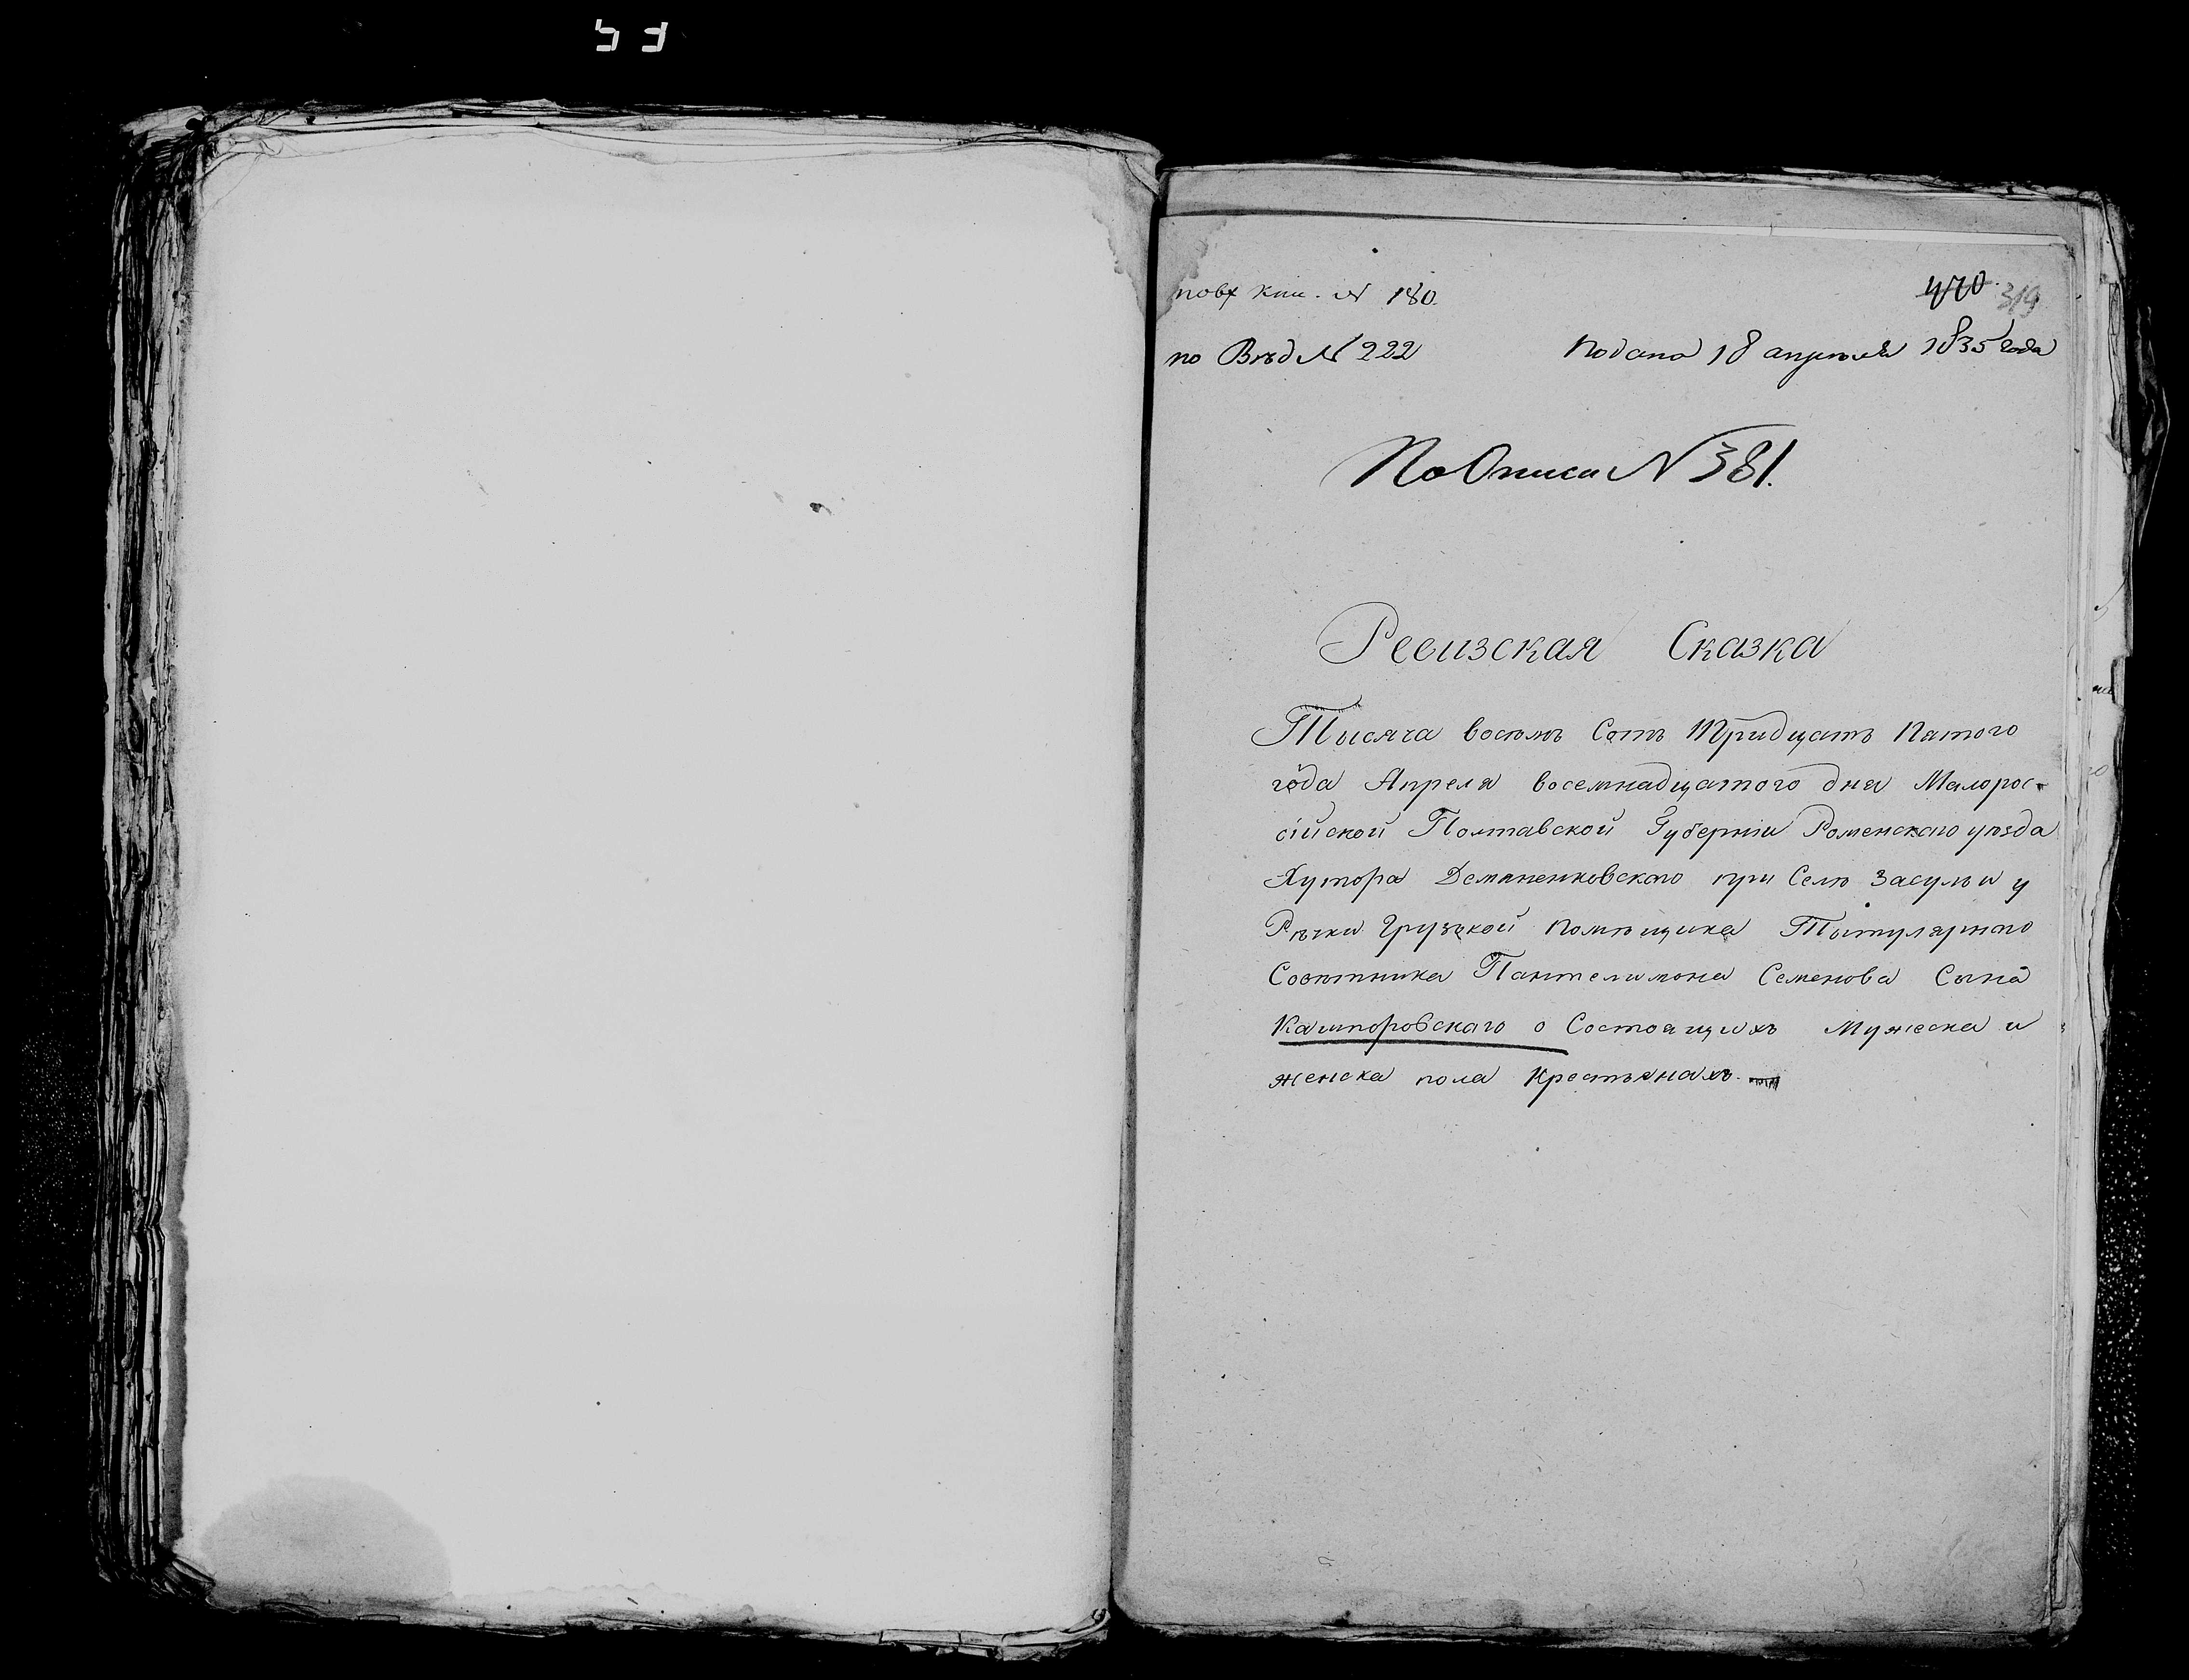 по вх кни. № 180.
470. 319
по Вѣд № 222
подана 18 апрѣля 1835 года
По Описи № 381.
Ревизская Сказка
Тысяча восѣмъ Сотъ Тридцатъ Пятого
года Апреля восемнадцатого дня Малорос-
сійской Полтавской Губерніи Роменскаго уѣзда
Хутора Деманенковского при Селѣ Засульи у
Рѣчки Грузькой Помѣщика Тытулярного
Совѣтника Пантелимона Семенова Сына
Кашпоровскаго о Состоящихъ Мужеска и
женска пола Крестьянахъ.